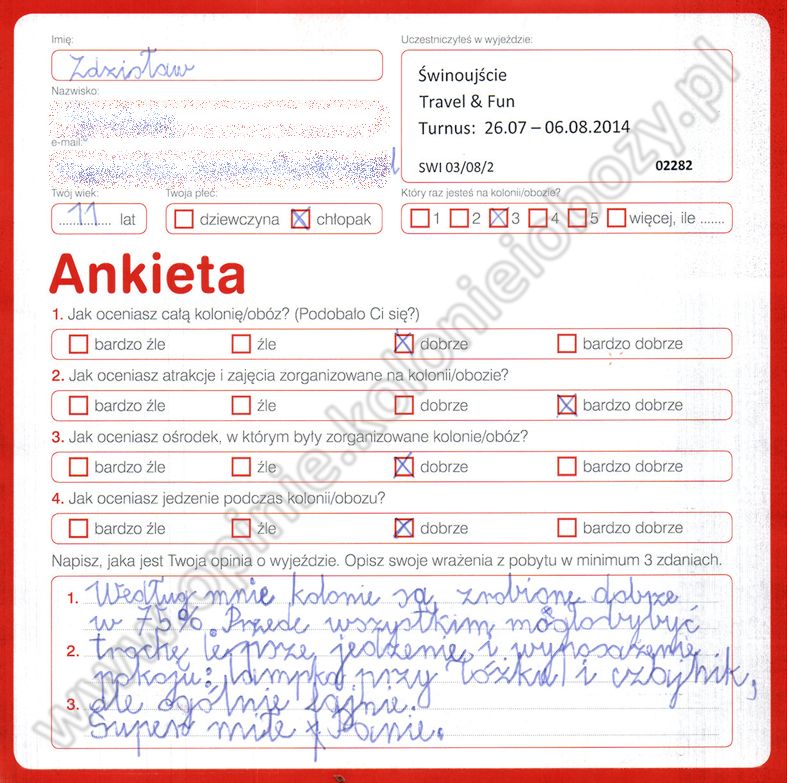 Imię:
Zdzisław
Nazwisko:
e-mail:
Twój wiek:
11 lat
Twoja płeć:
dziewczyna chłopak
Uczestniczyłeś w wyjeździe:
Świnoujście
Travel & Fun
Turnus: 26.07 – 06.08.2014
SWI 03/08/2 02282
Który raz jesteś na kolonii/obozie?
1 2 3 4 5 więcej, ile .......
Ankieta
1. Jak oceniasz całą kolonię/obóz? (Podobało Ci się?)
bardzo źle źle dobrze bardzo dobrze
2. Jak oceniasz atrakcje i zajęcia zorganizowane na kolonii/obozie?
bardzo źle źle dobrze bardzo dobrze
3. Jak oceniasz ośrodek, w którym były zorganizowane kolonie/obóz?
bardzo źle źle dobrze bardzo dobrze
4. Jak oceniasz jedzenie podczas kolonii/obozu?
bardzo źle źle dobrze bardzo dobrze
Napisz, jaka jest Twoja opinia o wyjeździe. Opisz swoje wrażenia z pobytu w minimum 3 zdaniach.
1. Według mnie kolonie są zrobione dobrze
w 75%. Przede wszystkim mogłobybyć
2. trochę lepsze jedzenie i wyposażenie
pokoju: lampka przy łóżku i czajnik,
3. ale ogólnie fajnie.
Super miłe Panie.
www.opinie.kolonieiobozy.pl